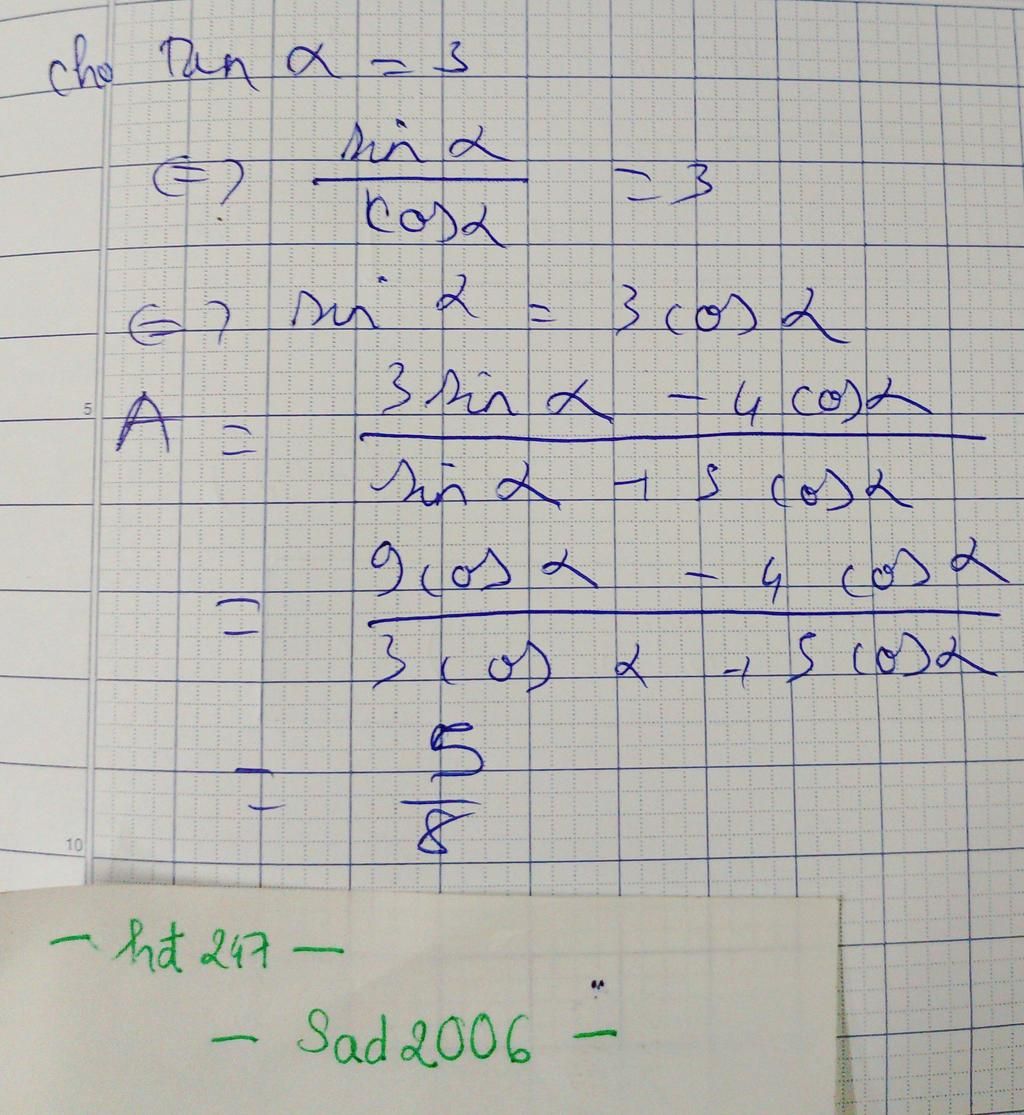 cho Tan α = 3
⇔ sin α / cosα = 3
⇔ sin α = 3 cos α
5
A = 3 sin α - 4 cosα / sin α + 5 cosα
= 9 cos α - 4 cos α / 3 cos α + 5 cosα
= 5 / 8
10
- hđ 247 -
- Sad 2006 -